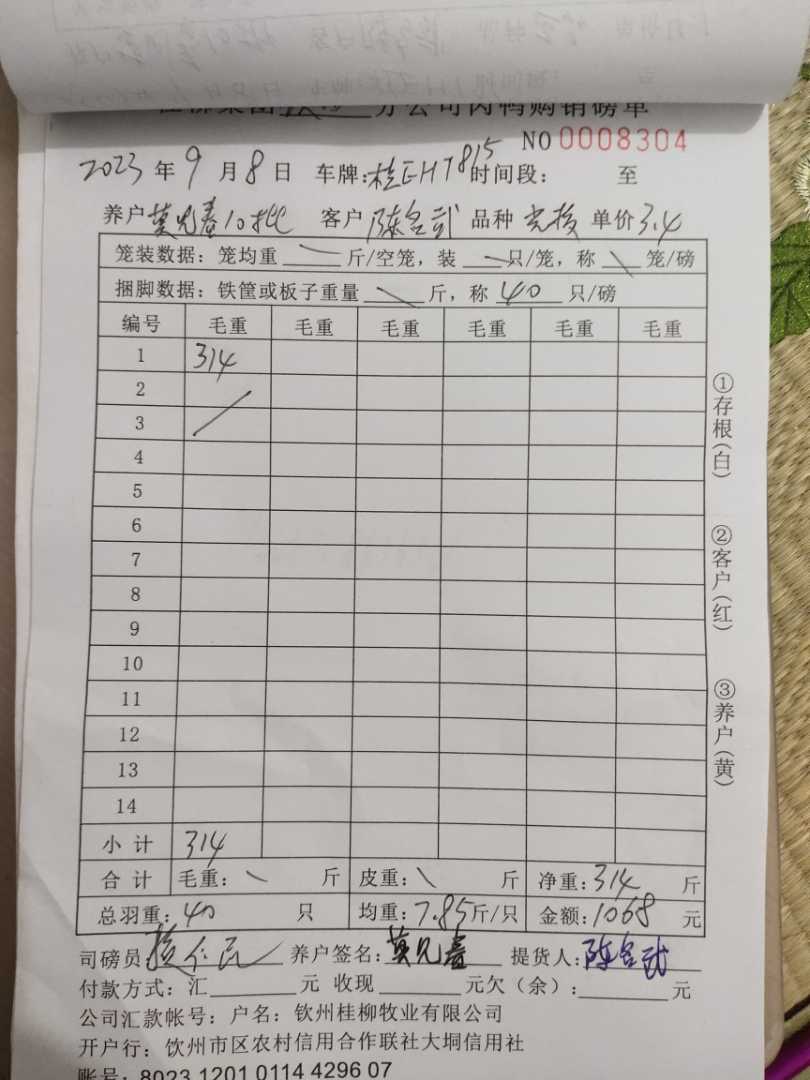 分公司肉鸭购销磅单
NO 0008304
2023 年 9 月 8 日 车牌:桂EHT815 时间段: 至
养户 莫兄春10批 客户 陈名武 品种 单价 3.4
笼装数据: 笼均重 斤/空笼, 装 只/笼, 称 笼/磅
捆脚数据: 铁筐或板子重量 斤, 称 40 只/磅
编号 毛重 毛重 毛重 毛重 毛重 毛重
1 314
2
3
4
5
6
7
8
9
10
11
12
13
14
小 计 314
合 计 毛重: 斤 皮重: 斤 净重: 314 斤
总羽重: 40 只 均重: 7.85 斤/只 金额: 1068 元
司磅员 养户签名: 莫兄春 提货人: 陈名武
付款方式: 汇 元 收现 元欠(余): 元
公司汇款帐号: 户名: 钦州桂柳牧业有限公司
开户行: 钦州市区农村信用合作联社大垌信用社
账号: 8023 1201 0114 4296 07
①存根(白)
②客户(红)
③养户(黄)